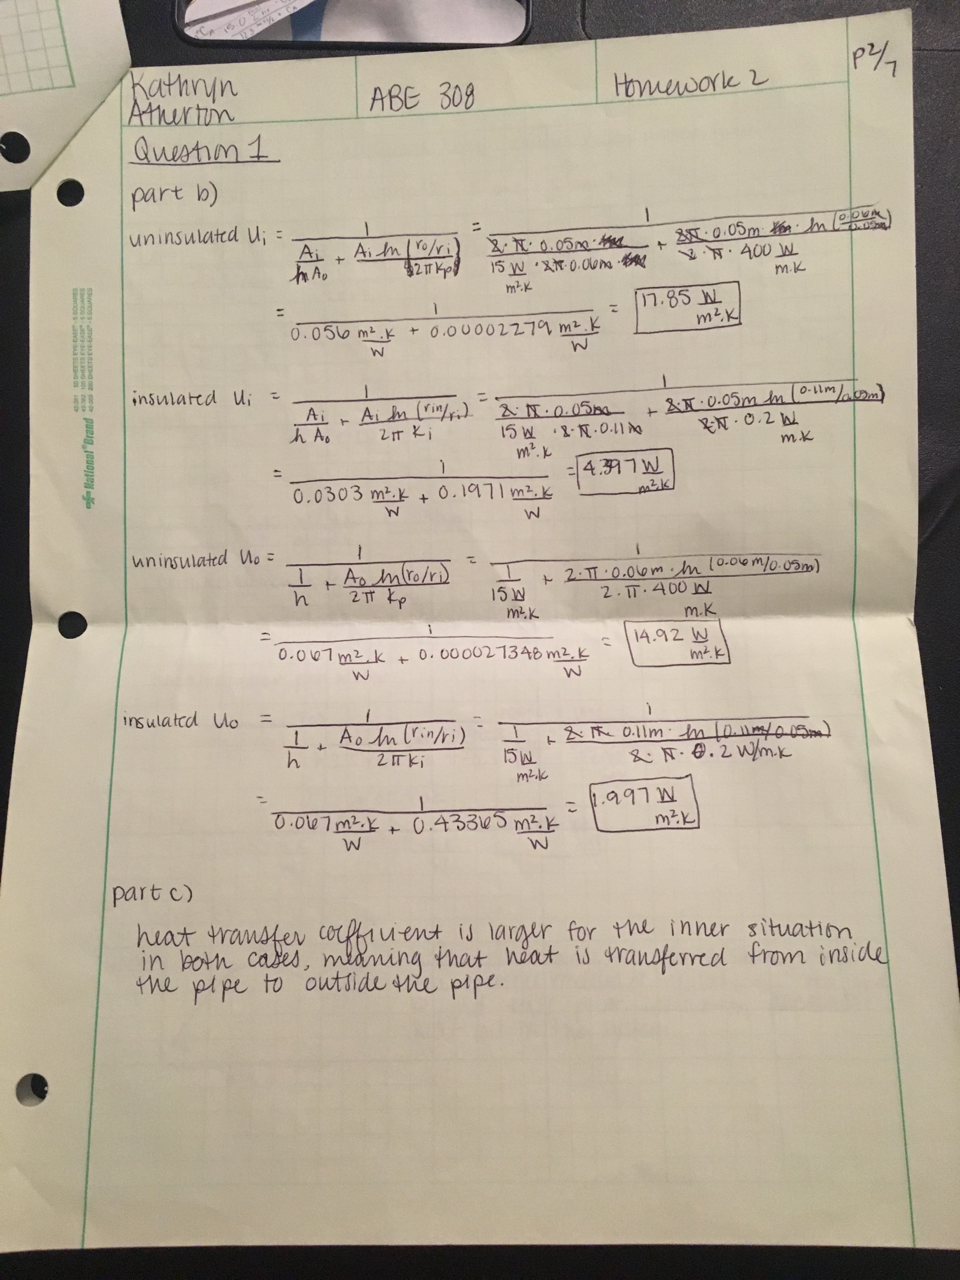 Kathryn
Atherton
ABE 308
Homework 2
P2/7
Question 1
part b)
uninsulated Ui = 1 / (Ai/(h Ao) + Ai ln(ro/ri)/(2π kp)) = 1 / (2·π·0.05m/(15 W/m²·K ·2π·0.06m) + 2π·0.05m·ln(0.06m/0.05m)/(2·π·400 W/m·K))
= 1 / (0.056 m²·K/W + 0.00002279 m²·K/W) = 17.85 W/m²·K
insulated Ui = 1 / (Ai/(h Ao) + Ai ln(rin/ri)/(2π Ki)) = 1 / (2·π·0.05m/(15 W/m²·K ·2·π·0.11m) + 2·π·0.05m ln(0.11m/0.05m)/(2·π·0.2 W/m·K))
= 1 / (0.0303 m²·K/W + 0.1971 m²·K/W) = 4.397 W/m²·K
uninsulated Uo = 1 / (1/h + Ao ln(ro/ri)/(2π kp)) = 1 / (1/(15 W/m²·K) + 2·π·0.06m·ln(0.06m/0.05m)/(2·π·400 W/m·K))
= 1 / (0.067 m²·K/W + 0.000027348 m²·K/W) = 14.92 W/m²·K
insulated Uo = 1 / (1/h + Ao ln(rin/ri)/(2π Ki)) = 1 / (1/(15 W/m²·K) + 2·π·0.11m·ln(0.11m/0.05m)/(2·π·0.2 W/m·K))
= 1 / (0.067 m²·K/W + 0.43365 m²·K/W) = 1.997 W/m²·K
part c)
heat transfer coefficient is larger for the inner situation
in both cases, meaning that heat is transferred from inside
the pipe to outside the pipe.
National® Brand